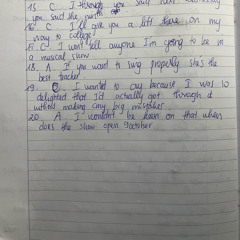 15. C I through you said
you said the
16. C I'll give you a lift there on my
way to college
17. C I won't tell anyone I'm going to be in
a musical show
18. A If you want to sing properly she's the
best teacher
19. C I wanted to cry because I was so
delighted that I'd actually got through it
without making any big mistakes
20. A I wouldn't be keen on that when
does the show open October